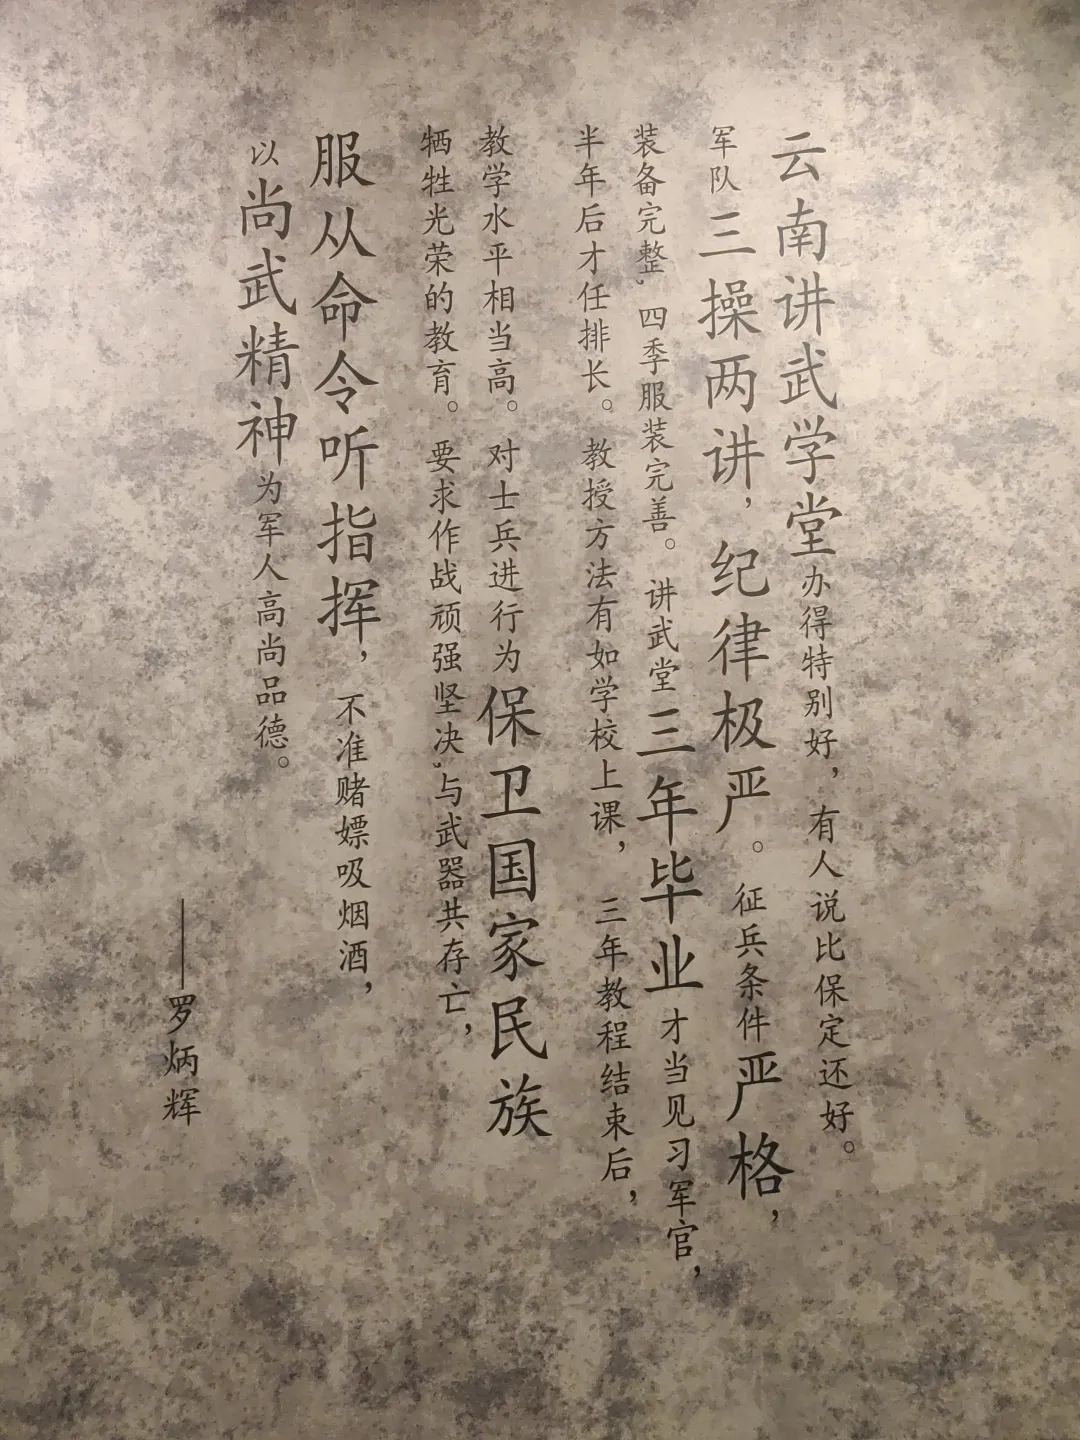 云南讲武学堂办得特别好，有人说比保定还好。
军队三操两讲，纪律极严。征兵条件严格，
装备完整，四季服装完善。讲武堂三年毕业才当见习军官，
半年后才任排长。教授方法有如学校上课，三年教程结束后，
教学水平相当高。对士兵进行为保卫国家民族
牺牲光荣的教育。要求作战顽强坚决，与武器共存亡，
服从命令听指挥，不准赌嫖吸烟酒，
以尚武精神为军人高尚品德。
——罗炳辉